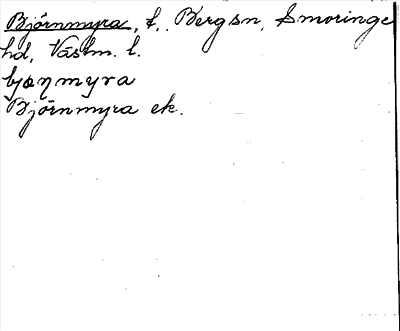 Björnmyra, t., Bergsn, Smoringe
hd, Västm. l.
bjœɳmyra
Björnmyra ek.